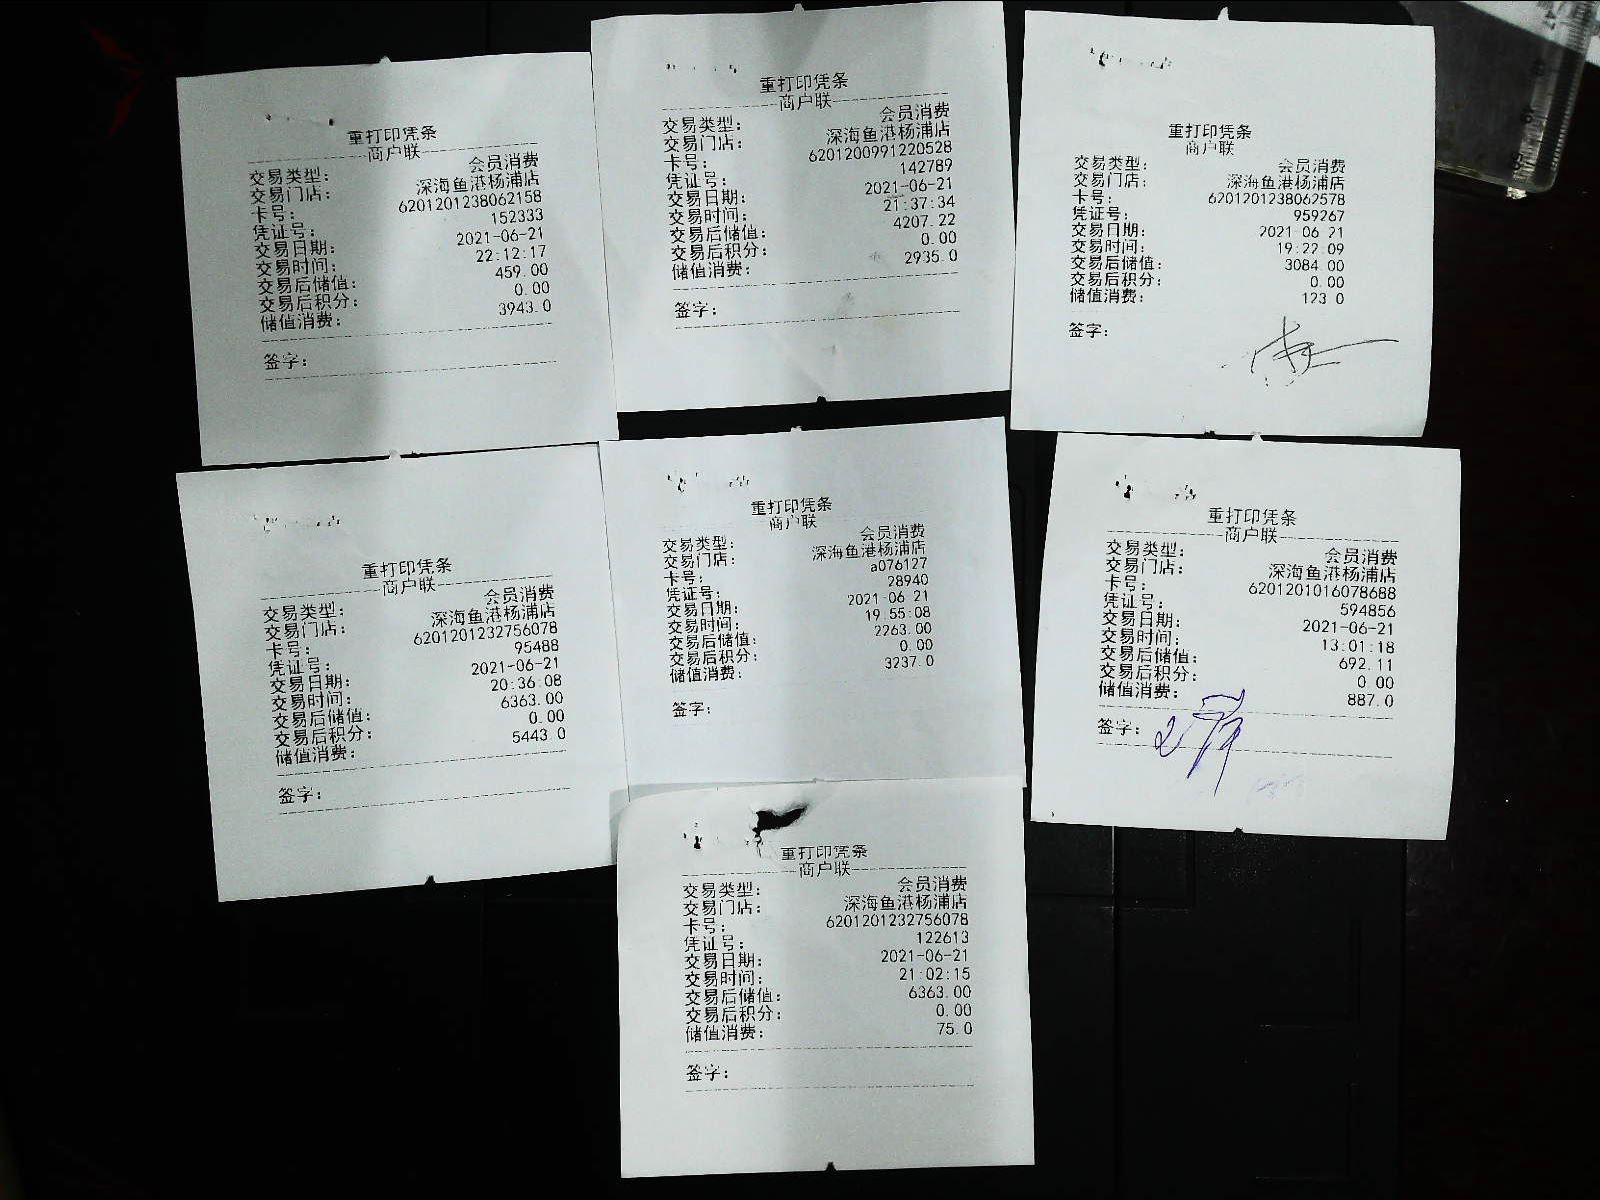 重打印凭条
商户联
交易类型： 会员消费
交易门店： 深海鱼港杨浦店
卡号： 6201201238062158
凭证号： 152333
交易日期： 2021-06-21
交易时间： 22:12:17
交易后储值： 459.00
交易后积分： 0.00
储值消费： 3943.0
签字：
重打印凭条
商户联
交易类型： 会员消费
交易门店： 深海鱼港杨浦店
卡号： 6201200991220528
凭证号： 142789
交易日期： 2021-06-21
交易时间： 21:37:34
交易后储值： 4207.22
交易后积分： 0.00
储值消费： 2935.0
签字：
重打印凭条
商户联
交易类型： 会员消费
交易门店： 深海鱼港杨浦店
卡号： 6201201238062578
凭证号： 959267
交易日期： 2021-06-21
交易时间： 19:22:09
交易后储值： 3084.00
交易后积分： 0.00
储值消费： 123.0
签字：
重打印凭条
商户联
交易类型： 会员消费
交易门店： 深海鱼港杨浦店
卡号： 6201201232756078
凭证号： 95488
交易日期： 2021-06-21
交易时间： 20:36:08
交易后储值： 6363.00
交易后积分： 0.00
储值消费： 5443.0
签字：
重打印凭条
商户联
交易类型： 会员消费
交易门店： 深海鱼港杨浦店
卡号： a076127
凭证号： 28940
交易日期： 2021-06-21
交易时间： 19:55:08
交易后储值： 2263.00
交易后积分： 0.00
储值消费： 3237.0
签字：
重打印凭条
商户联
交易类型： 会员消费
交易门店： 深海鱼港杨浦店
卡号： 6201201016078688
凭证号： 594856
交易日期： 2021-06-21
交易时间： 13:01:18
交易后储值： 692.11
交易后积分： 0.00
储值消费： 887.0
签字：
重打印凭条
商户联
交易类型： 会员消费
交易门店： 深海鱼港杨浦店
卡号： 6201201232756078
凭证号： 122613
交易日期： 2021-06-21
交易时间： 21:02:15
交易后储值： 6363.00
交易后积分： 0.00
储值消费： 75.0
签字：